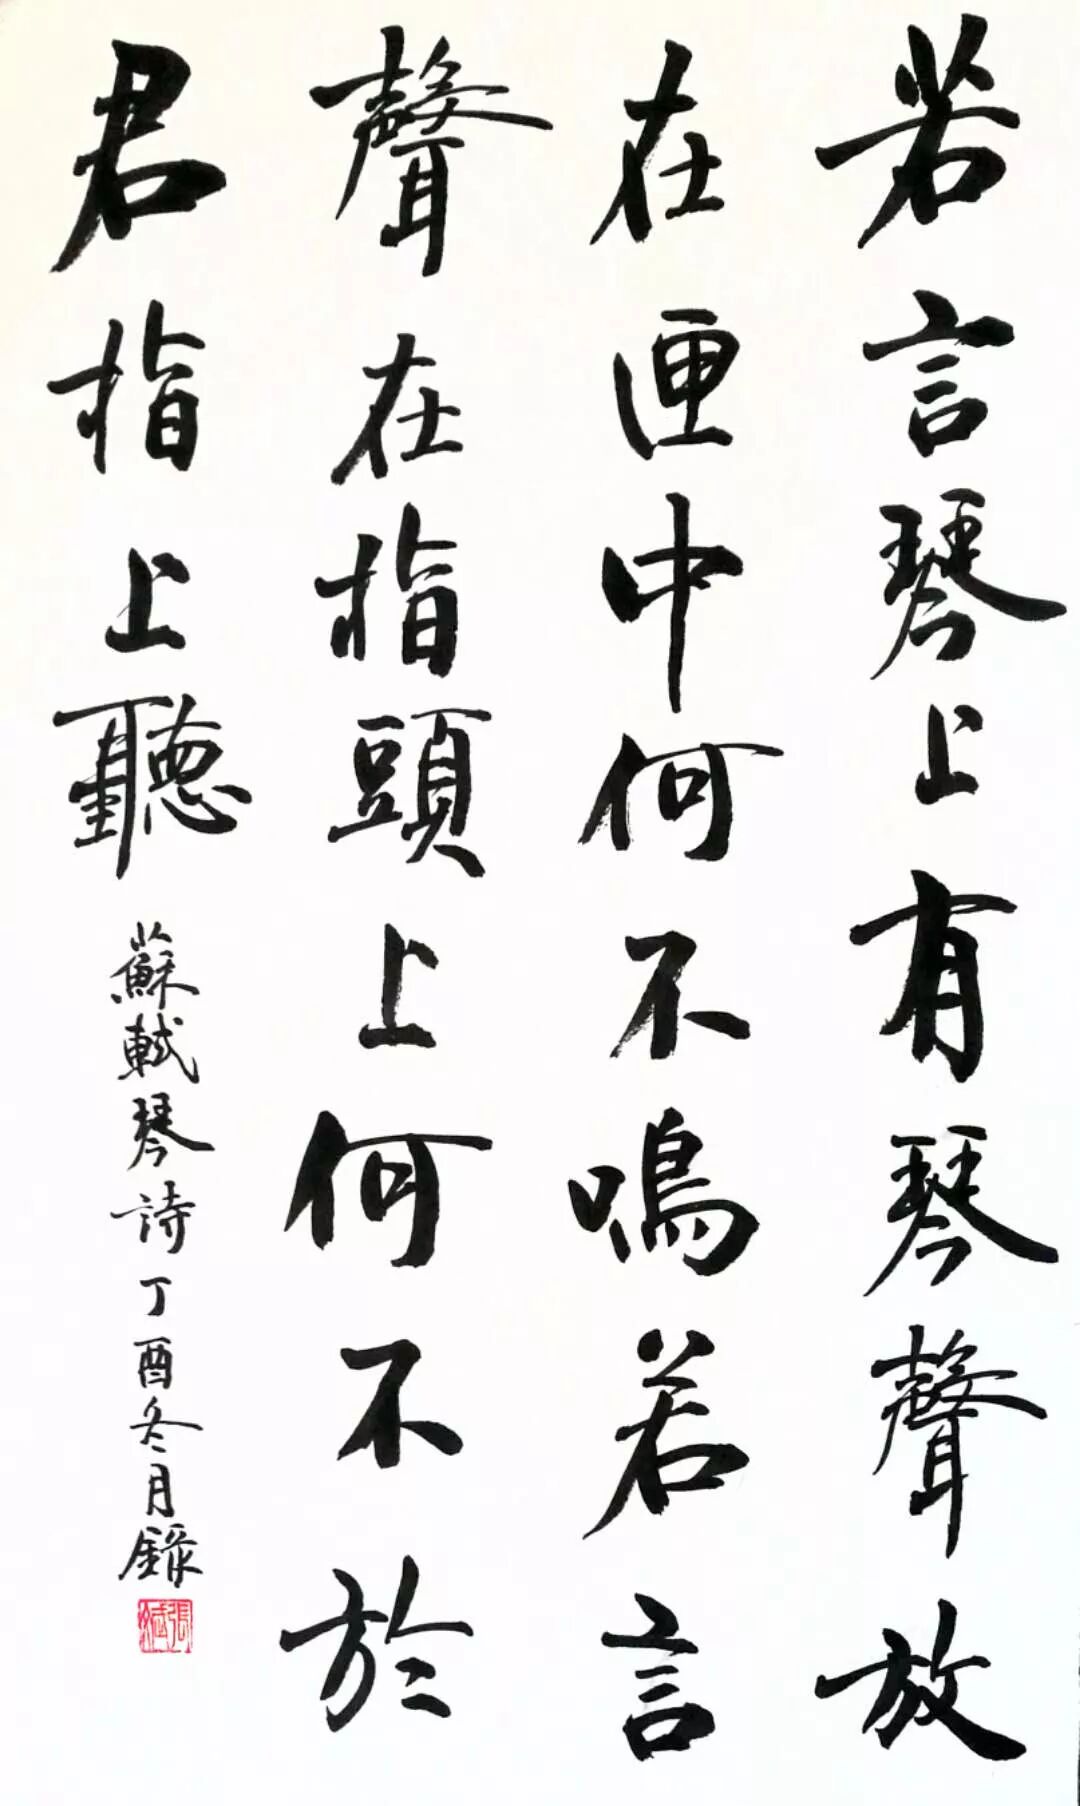 若言琴上有琴聲放
在匣中何不鳴若言
聲在指頭上何不於
君指上聽
蘇軾琴詩丁酉冬月錄